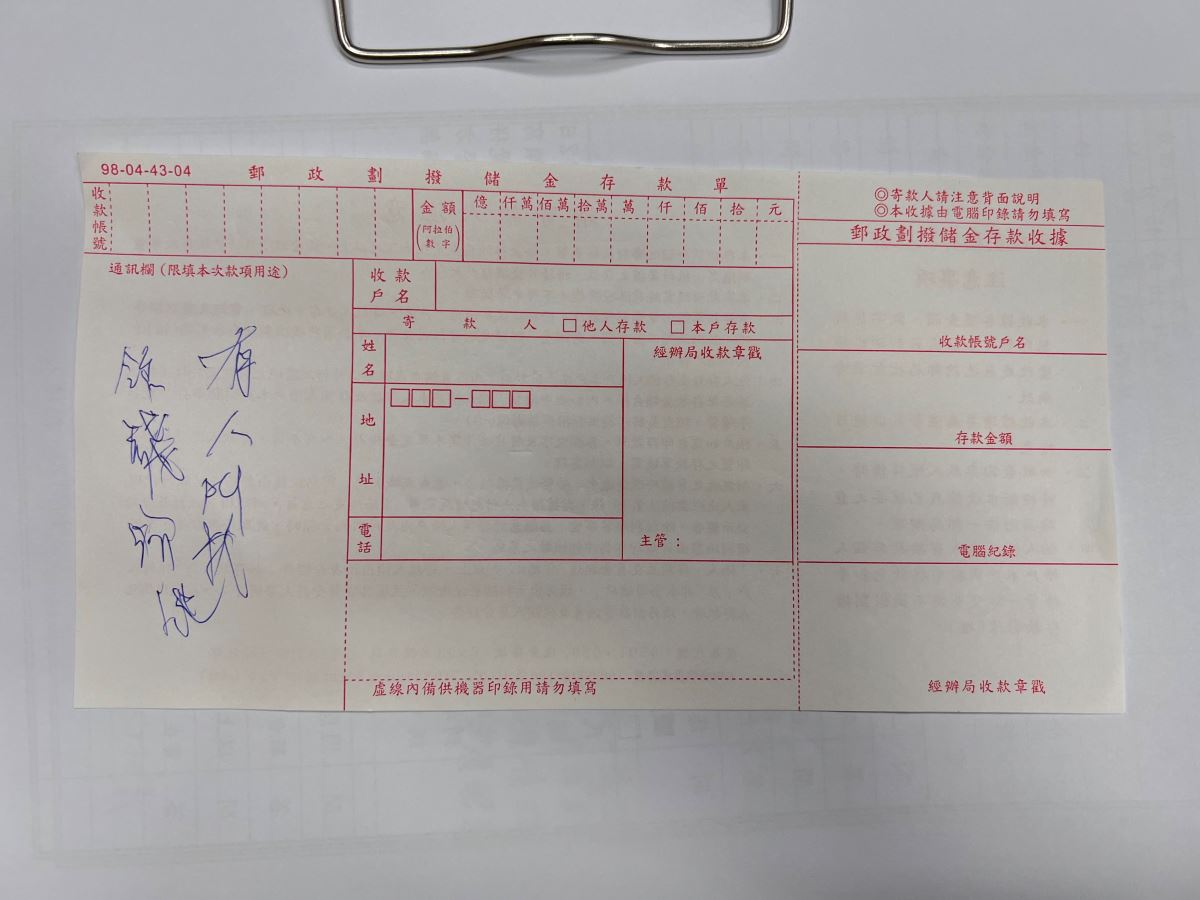 98-04-43-04
郵政劃撥儲金存款單
收款帳號
金額
(阿拉伯數字)
億 仟萬 佰萬 拾萬 萬 仟 佰 拾 元
通訊欄(限填本次款項用途)
有人叫我
收款戶名
寄款人 □他人存款 □本戶存款
姓名
地址
□□□-□□□
電話
經辦局收款章戳
主管:
虛線內備供機器印錄用請勿填寫
◎寄款人請注意背面說明
◎本收據由電腦印錄請勿填寫
郵政劃撥儲金存款收據
收款帳號戶名
存款金額
電腦紀錄
經辦局收款章戳